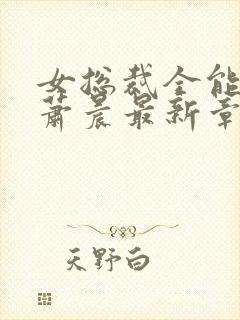 女总裁全能
萧晨最新章
天野白